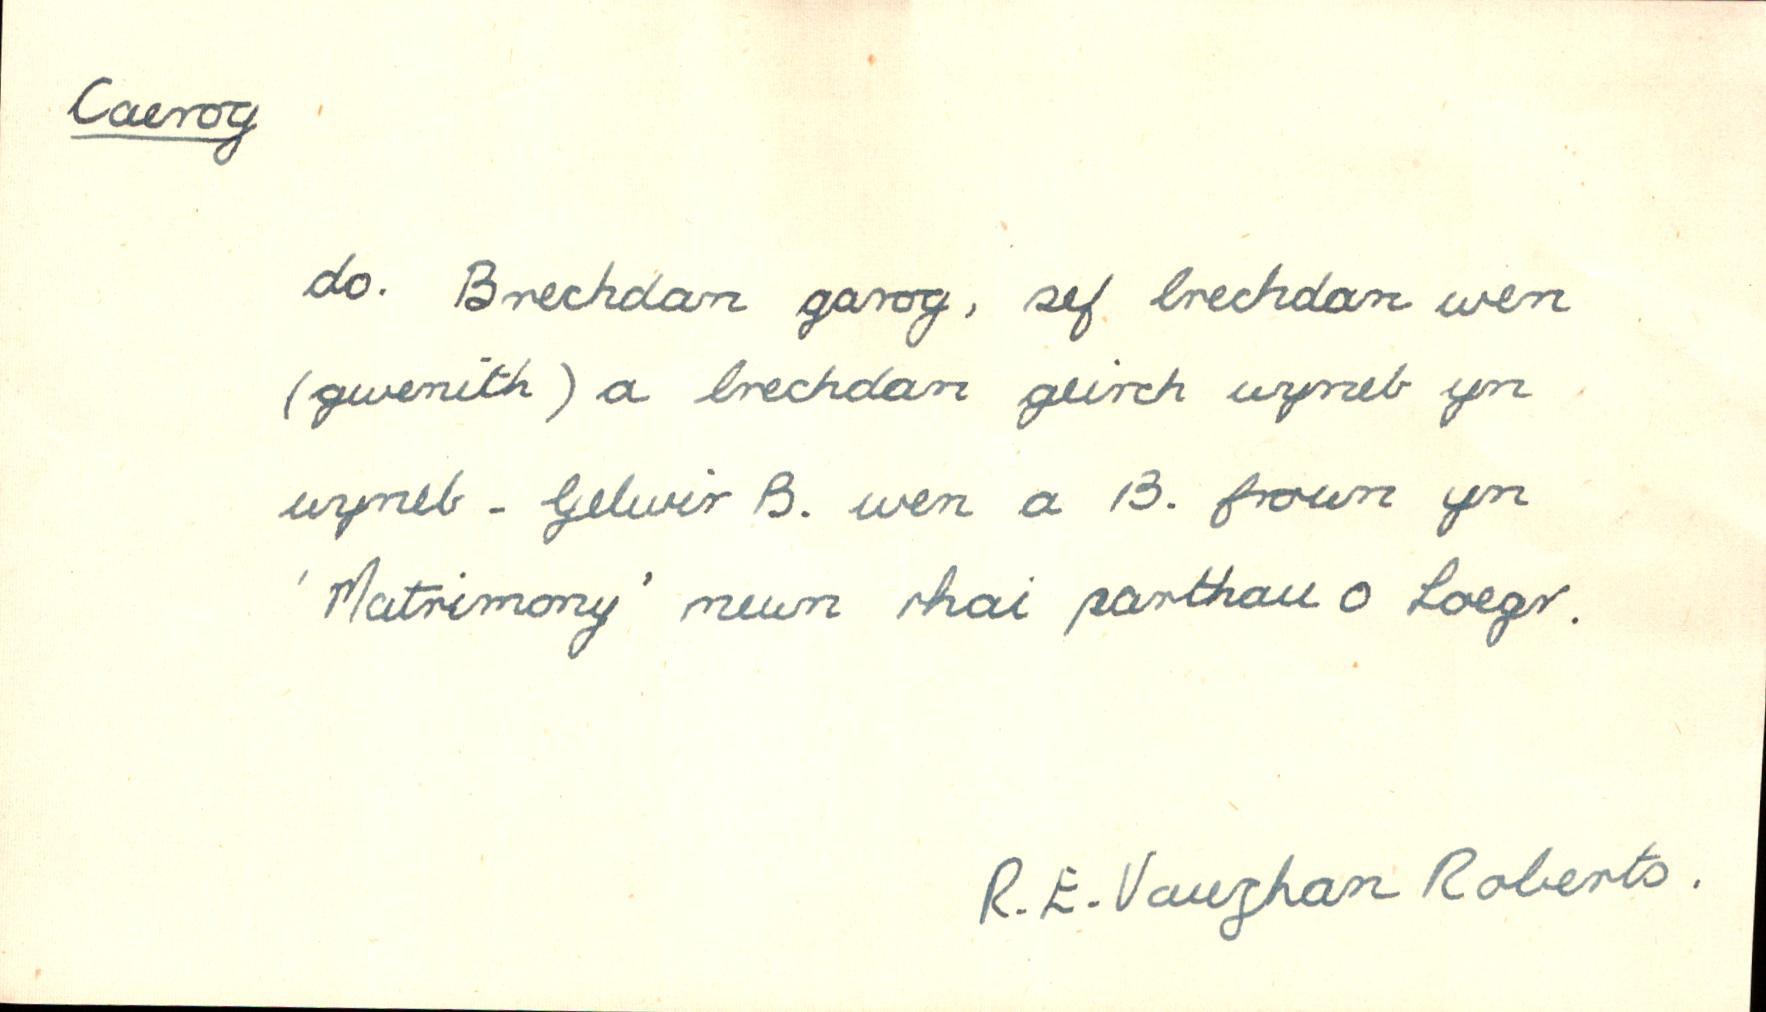 Caerog
do. Brechdan garog, sef brechdan wen
(gwenith) a brechdan geirch wyneb yn
wyneb - Gelwir B. wen a B. frown yn
'Matrimony' mewn rhai parthau o Loegr.
R. E. Vaughan Roberts.